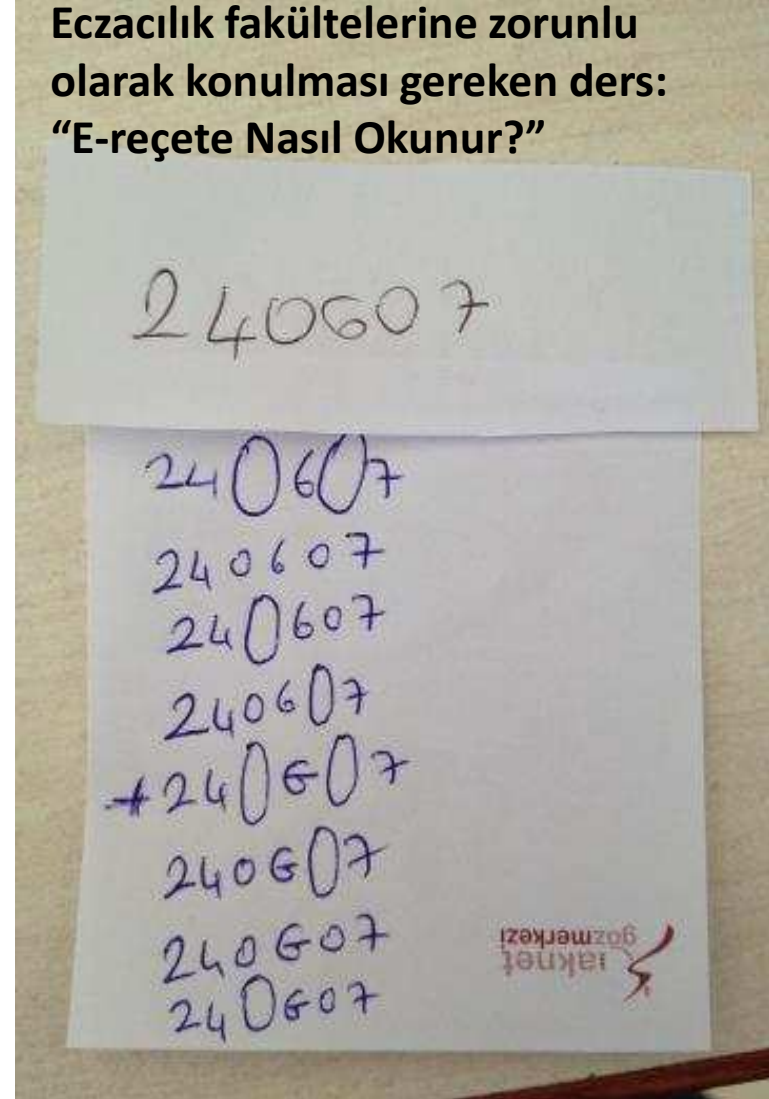 Eczacılık fakültelerine zorunlu
olarak konulması gereken ders:
“E-reçete Nasıl Okunur?”
240G07
240607
240607
240607
240607
+240G07
240G07
240G07
240G07
iaknet
gözmerkezi